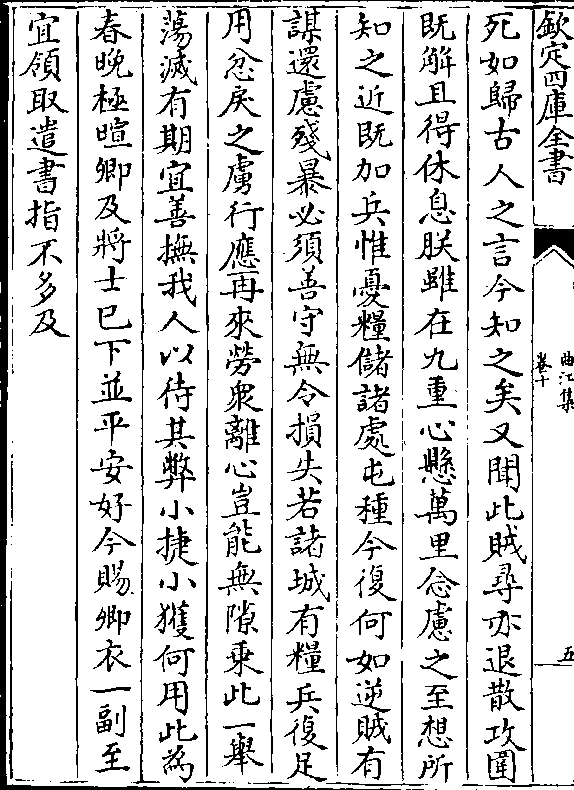 欽定四庫全書
曲江集
卷十
五
死如歸古人之言今知之矣又聞此賊尋亦退散攻圍
既解且得休息朕雖在九重心懸萬里念慮之至想所
知之近既加兵惟憂糧儲諸處屯種今復何如逆賊有
謀還慮殘暴必須善守無令損失若諸城有糧兵復足
用忿戾之虜行應再來勞衆離心豈能無隙乗此一舉
蕩滅有期宜善撫我人以待其弊小捷小獲何用此為
春晚極暄卿及將士已下並平安好今賜卿衣一副至
宜領取遣書指不多及